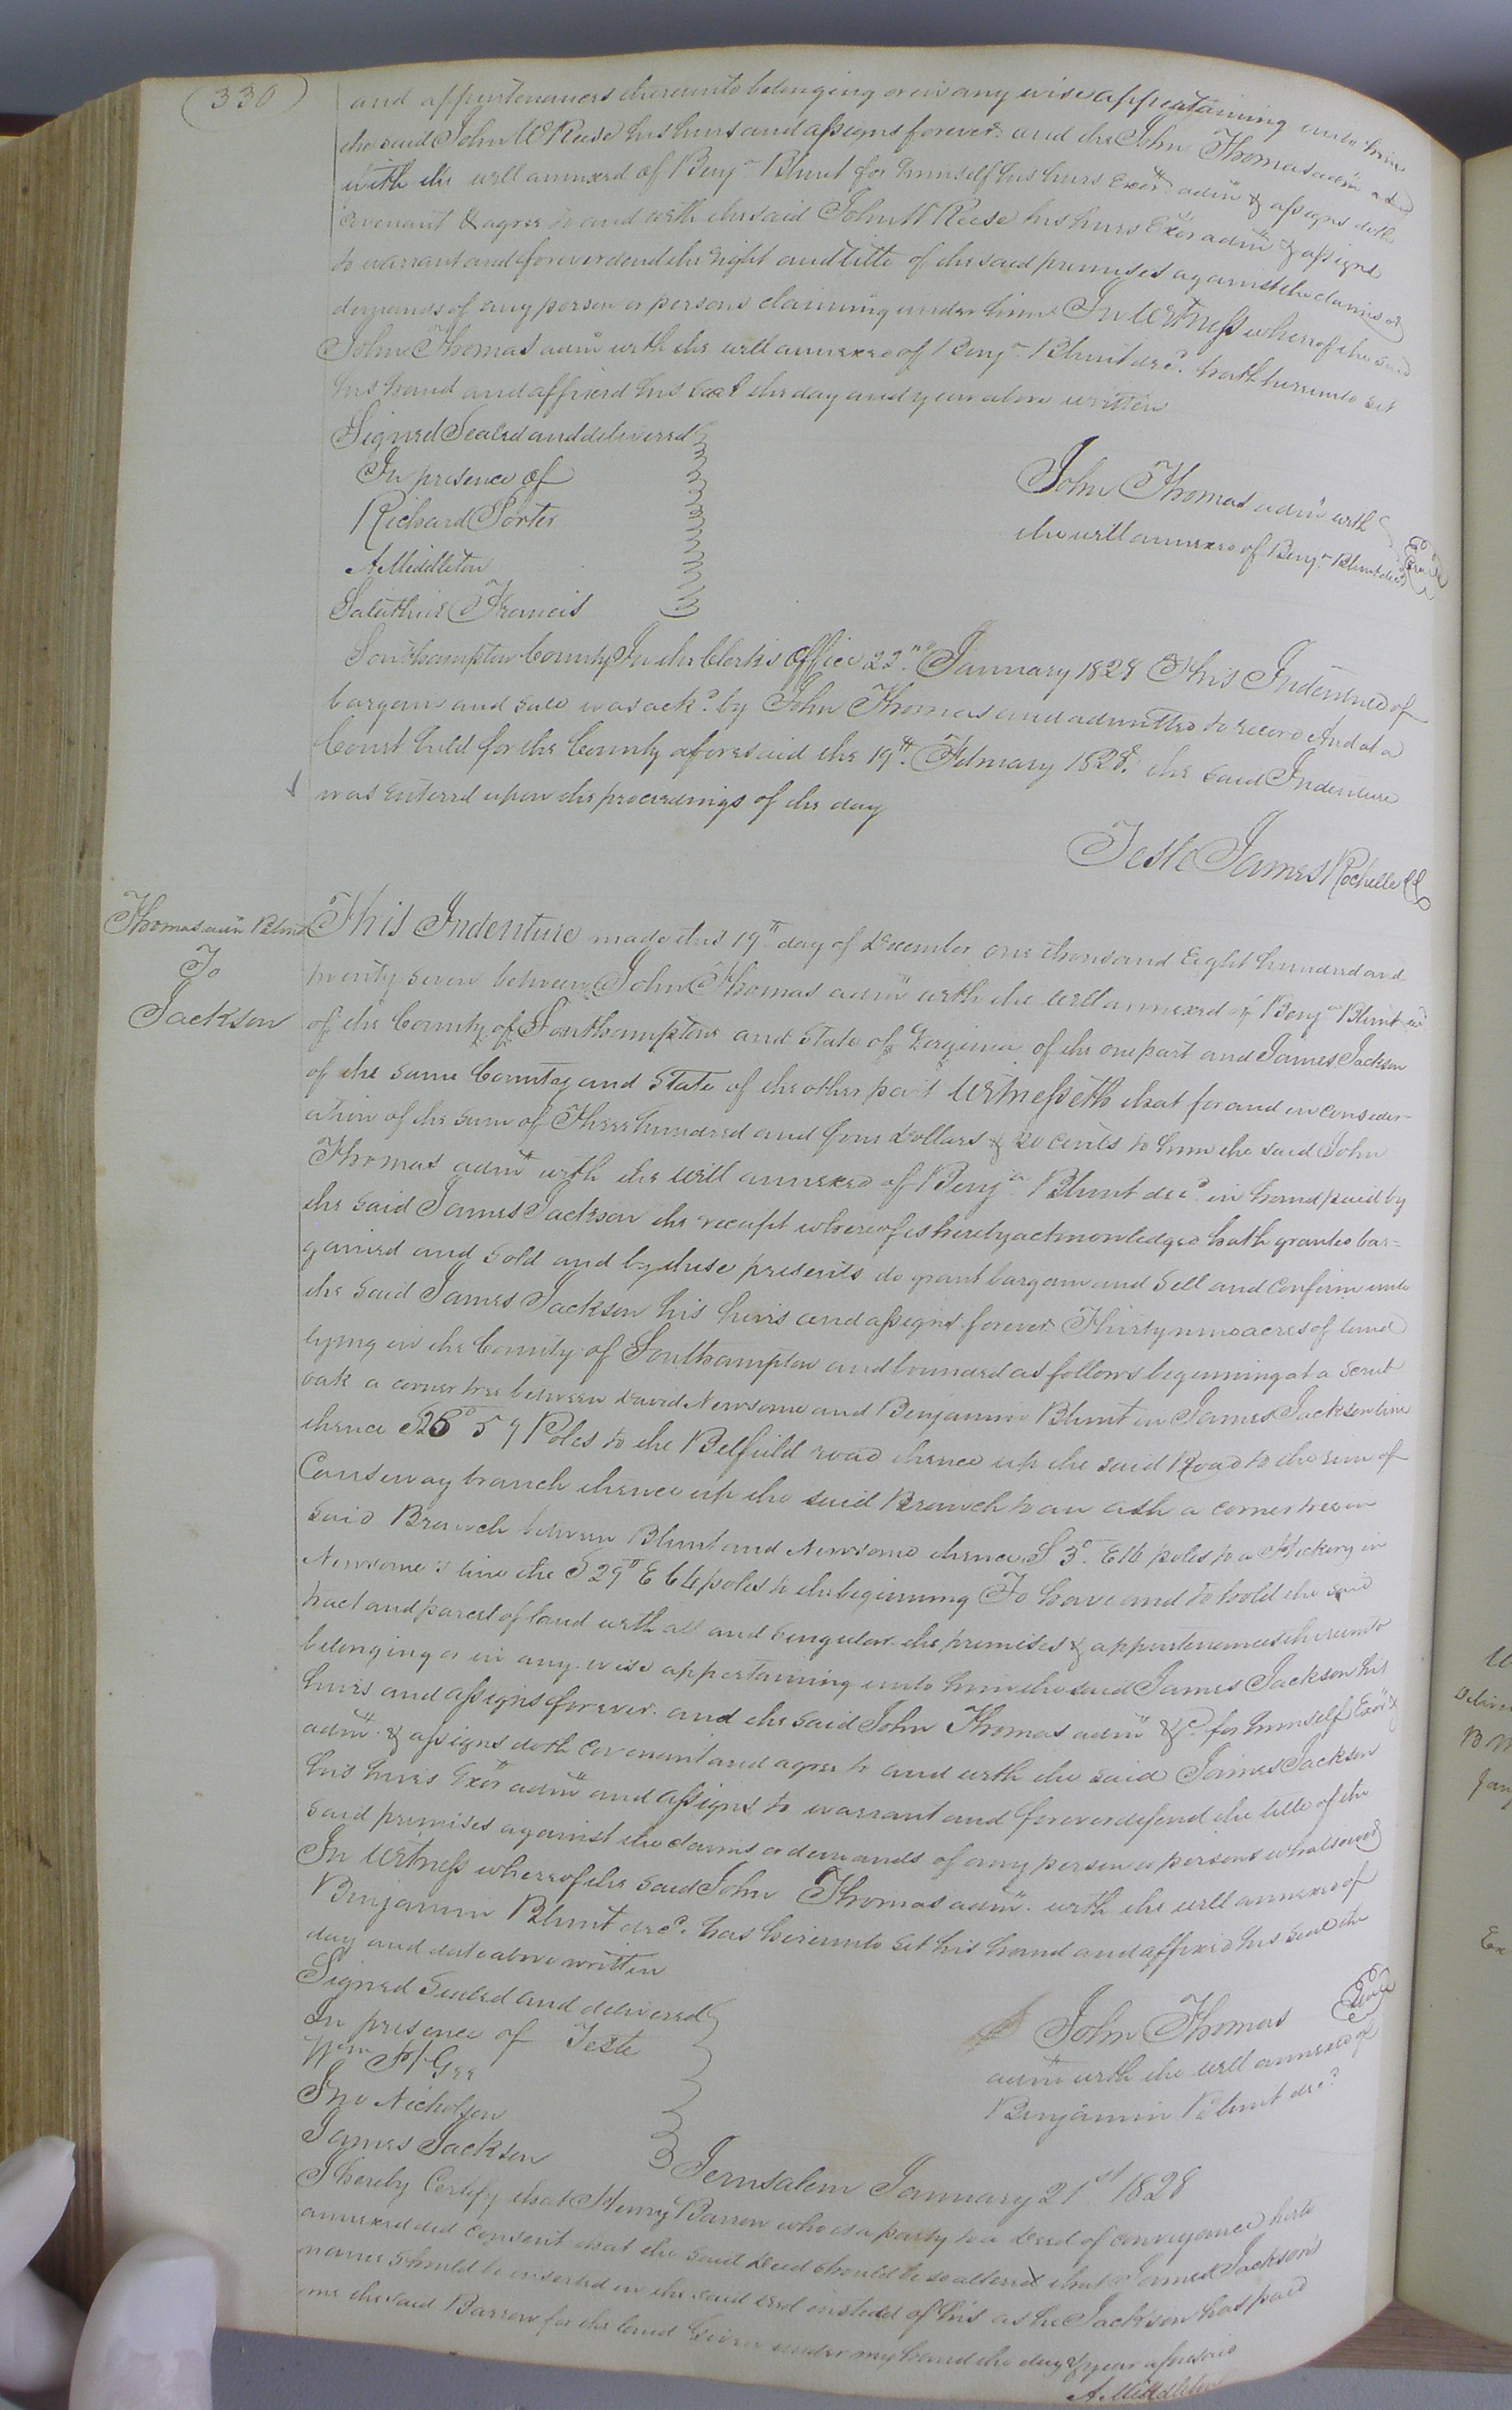 330
and appurtenances thereunto belonging or in any wise appertaining unto him
the said John W Reese his heirs and assigns forever and the John Thomas adm̅
with the will annexed of Benjn Blunt for himself his heirs Exors adm̅ & assigns doth
Covenant & agree to and with the said John W Reese his heirs Exors adm̅ & assigns
to warrant and forever defend the right and title of the said premises against the claims or
demands of any person or persons claiming under him In Witness whereof the said
John Thomas adm̅ with the will annexed of Benjn Blunt decd. hath hereunto set
his hand and affixed his seal the day and year above written
Signed Sealed and delivered
In presence of
Richard Porter
A Middleton
Salathiel Francis
John Thomas adm̅ with
the will annexed of Benjn Blunt decd
Seal
Southampton County In the Clerks Office 22nd January 1828 This Indenture of
bargain and sale was ackd. by John Thomas and admitted to record And at a
Court held for the County aforesaid the 19th. February 1828. the said Indenture
was entered upon the proceedings of the day
Teste James Rochelle
Thomas adm̅ Blunt
To
Jackson
This Indenture made this 19th day of December one thousand Eight hundred and
twenty seven between John Thomas adm̅ with the will annexed of Benjn Blunt decd
of the County of Southampton and State of Virginia of the one part and James Jackson
of the same County and State of the other part Witnesseth that for and in consider-
ation of the sum of Three hundred and four Dollars & 20 cents to him the said John
Thomas adm̅ with the will annexed of Benjn Blunt decd in hand paid by
the said James Jackson the receipt whereof is hereby acknowledged hath granted bar=
gained and sold and by these presents do grant bargain and sell and confirm unto
the said James Jackson his heirs and assigns forever Thirty nine acres of land
lying in the County of Southampton and bounded as follows beginning at a scrub
oak a corner tree between David Newsome and Benjamin Blunt in James Jackson line
thence 59 Poles to the Belfield road thence up the said Road to the run of
Causeway branch thence up the said Branch to an ash a corner tree in
said Branch between Blunt and Newsome thence S 3o. E 16 poles to a Hickory in
Newsome's line the S 29o E 64 poles to the beginning To have and to hold the said
tract and parcel of land with all and singular the premises & appurtenances thereunto
belonging or in any wise appertaining unto him the said James Jackson his
heirs and assigns forever. and the said John Thomas adm̅ &c. for himself Exors &
adm̅. & assigns doth covenant and agree to and with the said James Jackson
his heirs Exors adm̅ and assigns to warrant and forever defend the title of the
said premises against the claims or demands of any person or persons whatsoever
In Witness whereof the said John Thomas adm̅. with the will annexed of
Benjamin Blunt decd. has hereunto set his hand and affixed his seal the
day and date above written
Signed Sealed and delivered
In presence of Teste
Wm H Gee
Jno Nicholson
James Jackson
John Thomas Seal
adm̅ with the will annexed of
Benjamin Blunt decd
Jerusalem January 21st 1828
I hereby Certify that Henry Barrow who is a party to a Deed of conveyance hereto
annexed did consent that the said Deed should be so altered that James Jackson's
name should be inserted in the said deed instead of his as he Jackson has paid
me the said Barrow for the land Given under my hand the day & year aforesaid
A Middleton